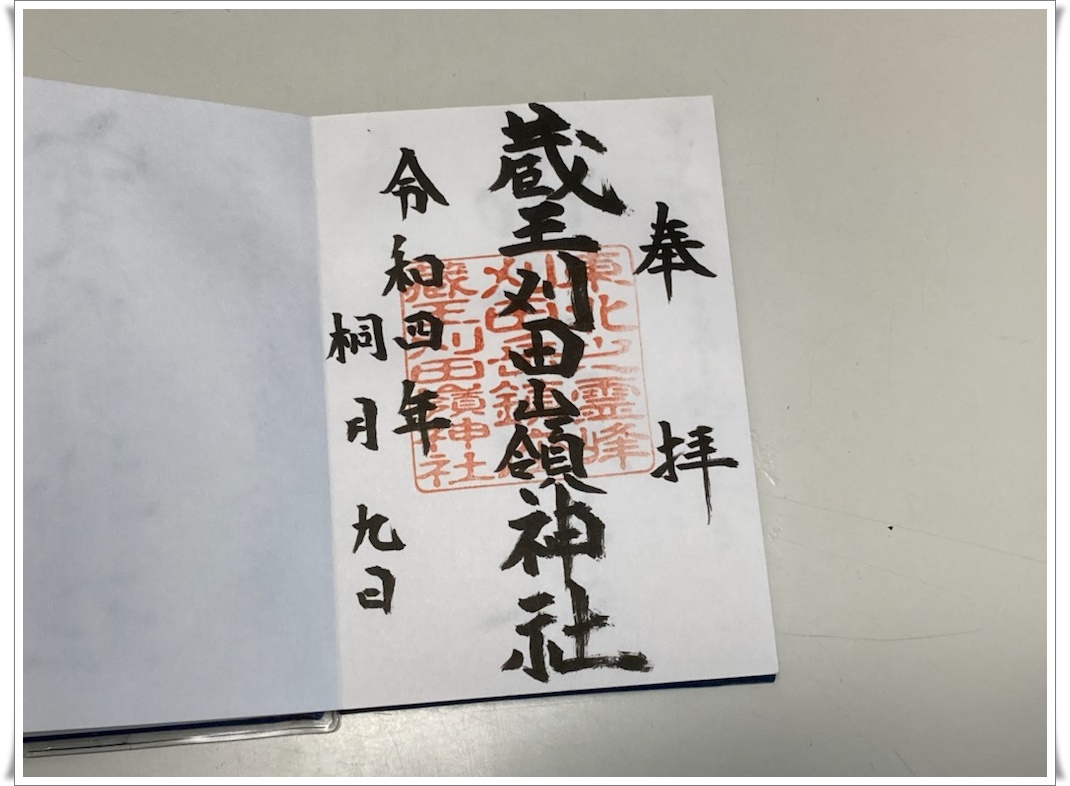 奉拝
蔵王刈田嶺神社
令和四年
桐月九日
東北之霊峰
刈田岳鎮座
蔵王刈田嶺神社